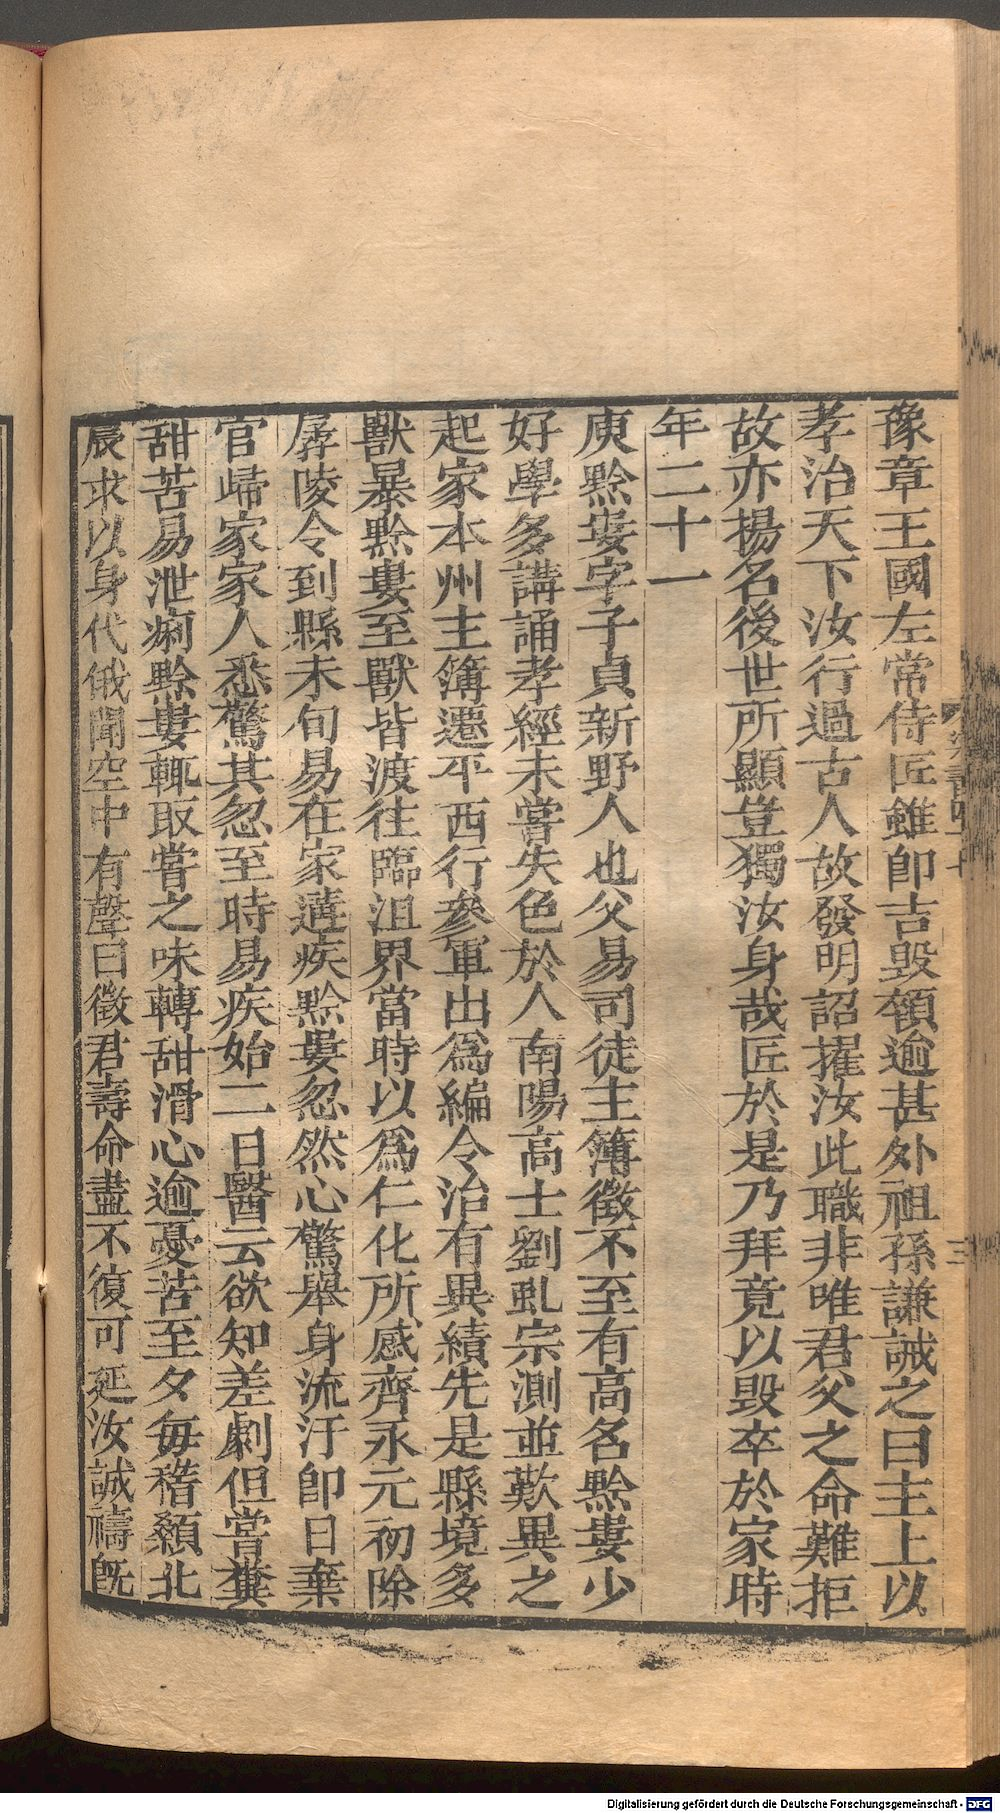 豫章王國左常侍匠雖卽吉毀顇逾甚外祖孫謙誡之曰主上以
孝治天下汝行過古人故發明詔擢汝此職非唯君父之命難拒
故亦揚名後世所顯豈獨汝身哉匠於是乃拜竟以毀卒於家時
年二十一
庾黔婁字子貞新野人也父易司徒主簿徵不至有高名黔婁少
好學多講誦孝經未嘗失色於人南陽高士劉虬宗測並歎異之
起家本州主簿遷平西行參軍出爲編令治有異績先是縣境多
獸暴黔婁至獸皆渡往臨沮界當時以爲仁化所感齊永元初除
孱陵令到縣未旬易在家遘疾黔婁忽然心驚舉身流汗卽日棄
官歸家家人悉驚其忽至時易疾始二日醫云欲知差劇但嘗糞
甜苦易泄痢黔婁輒取嘗之味轉甜滑心逾憂苦至夕每稽顙北
辰求以身代俄聞空中有聲曰徵君壽命盡不復可延汝誠禱旣
三
Digitalisierung gefördert durch die Deutsche Forschungsgemeinschaft - DFG